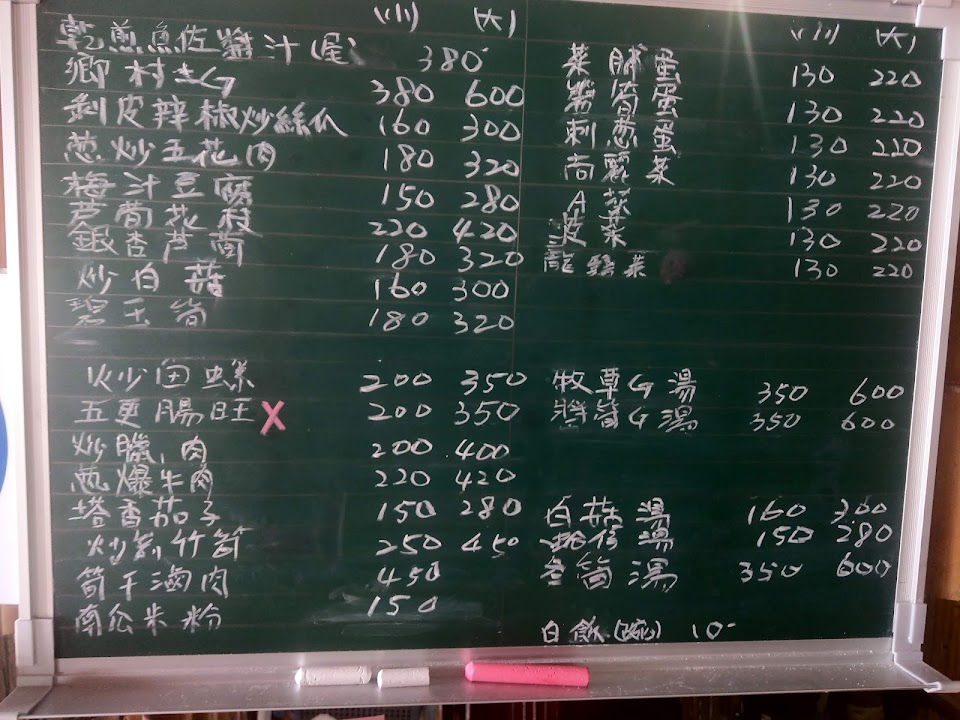 (小) (大)
乾煎魚佐醬汁(尾) 380
鄉村土G 380 600
剝皮辣椒炒絲瓜 160 300
蔥炒五花肉 180 320
梅汁豆腐 150 280
芦荀花枝 220 420
銀杏芦荀 180 320
炒白菇 160 300
碧玉筍 180 320
炒田螺 200 350
五更腸旺 X 200 350
炒臘肉 200 400
蔥爆牛肉 220 420
塔香茄子 150 280
炒劍竹筍 250 450
筍干滷肉 450
南瓜米粉 150
(小) (大)
菜脯蛋 130 220
筍蛋 130 220
刺蔥蛋 130 220
高麗菜 130 220
A菜 130 220
菜 130 220
龍鬚菜 130 220
牧草G湯 350 600
醬筍G湯 350 600
白菇湯 160 300
湯 150 280
筍湯 350 600
白飯(碗) 10-